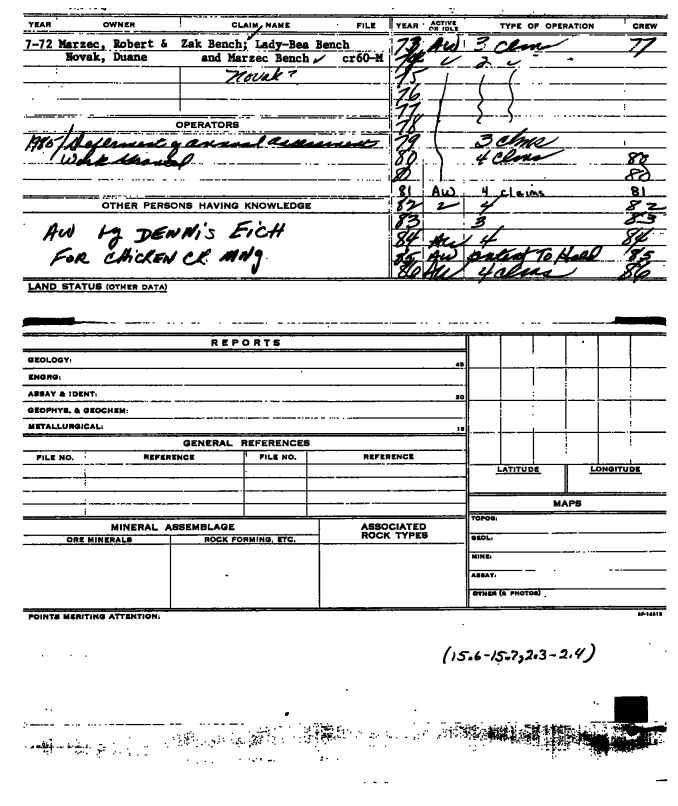 YEAR OWNER CLAIM NAME FILE YEAR ACTIVE OR IDLE TYPE OF OPERATION CREW
7-72 Marzec, Robert & Zak Bench; Lady-Bea Bench 73 AW 3 clms 77
Novak, Duane and Marzec Bench ✓ cr60-M 74 ✓ 2 ✓
Novak? 75
76
77
OPERATORS 78
1985/Deferment of annual assessment 79 3 clms
Work 80 4 clms 80
80 80
81 AW 4 claims 81
OTHER PERSONS HAVING KNOWLEDGE 82 2 4 82
83 3 83
AW by DENNIS EICH 84 AW 4 84
FOR CHICKEN CR MNG. 85 AW intent To Hold 85
86 AW 4 clms 86
LAND STATUS (OTHER DATA)
REPORTS
GEOLOGY: 45
ENGRG:
ASSAY & IDENT: 30
GEOPHYS. & GEOCHEM:
METALLURGICAL: 15
GENERAL REFERENCES
FILE NO. REFERENCE FILE NO. REFERENCE
LATITUDE LONGITUDE
MAPS
MINERAL ASSEMBLAGE ASSOCIATED ROCK TYPES
ORE MINERALS ROCK FORMING, ETC.
TOPOG:
GEOL:
MINE:
ASSAY:
OTHER (& PHOTOS)
POINTS MERITING ATTENTION:
(15.6-15.7, 2.3-2.4)